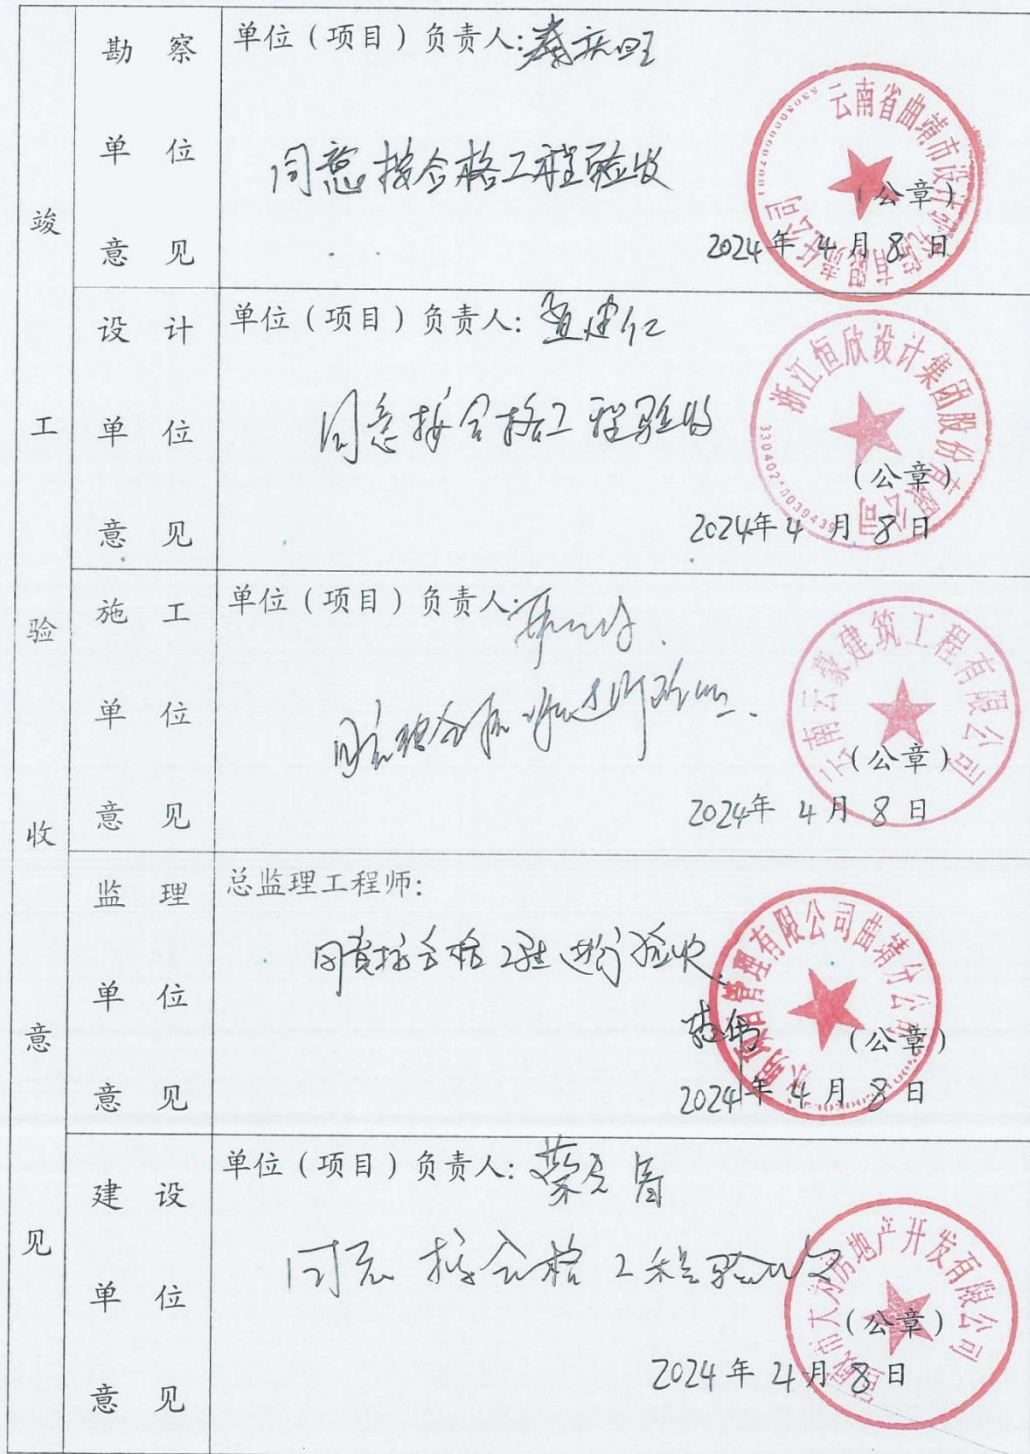 竣工验收意见
勘察单位意见
单位(项目)负责人:
同意按合格工程验收
云南省曲靖市设计研究院有限责任公司
(公章)
2024年4月8日
设计单位意见
单位(项目)负责人:
同意按合格工程验收
浙江恒欣设计集团股份有限公司
(公章)
2024年4月8日
施工单位意见
单位(项目)负责人:
云南云豪建筑工程有限公司
(公章)
2024年4月8日
监理单位意见
总监理工程师:
同意按合格工程进行验收
管理有限公司曲靖分公司
(公章)
2024年4月8日
建设单位意见
单位(项目)负责人:
同意按合格工程验收
市大为房地产开发有限公司
(公章)
2024年4月8日